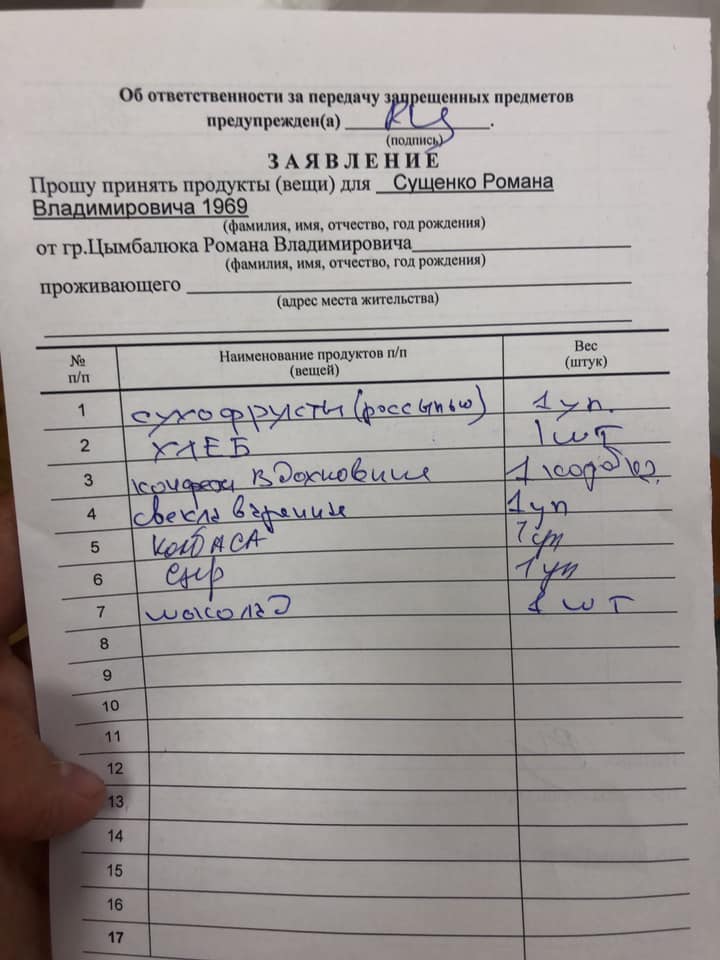 Об ответственности за передачу запрещенных предметов
предупрежден(а) ____________.
(подпись)
ЗАЯВЛЕНИЕ
Прошу принять продукты (вещи) для Сущенко Романа
Владимировича 1969
(фамилия, имя, отчество, год рождения)
от гр.Цымбалюка Романа Владимировича
(фамилия, имя, отчество, год рождения)
проживающего
(адрес места жительства)
№ п/п Наименование продуктов п/п (вещей) Вес (штук)
1 сухофрукты (россыпью) 1 уп.
2 ХЛЕБ 1 шт
3 конфеты Вдохновение 1 коробка
4 свекла вареная 1 уп
5 колбаса уп
6 сыр 1 уп
7 шоколад 1 шт
8
9
10
11
12
13
14
15
16
17